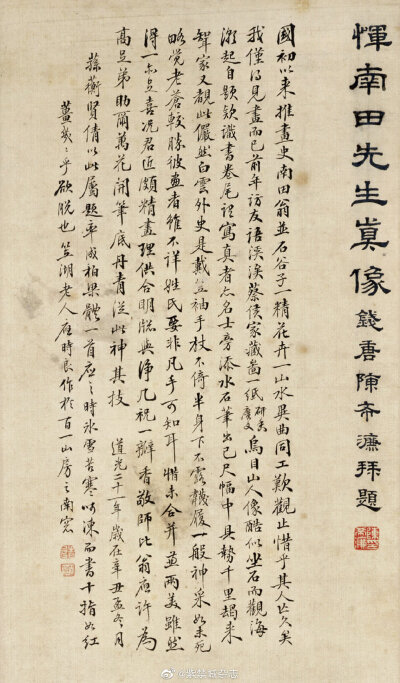 惲南田先生真像
錢唐陳希濂拜題
國初以來推畫史南田翁並石谷子一精花卉一山水異曲同工歎觀止惜乎其人亡久矣
我僅得見畫而已前年訪友語溪涘蔡侯家藏啚一紙研香廣文烏目山人像酷似坐石而觀海
潮起自題款識書卷尾謂寫真者亦名士旁添水石筆出己尺幅中具勢千里朅來
聟家又覩此儼然白雲外史是戴笠袖手杖不倚半身下不露韈履一般神采如未死
略覺老蒼較勝彼畫者雖不詳姓氏要非凡手可知耳惜未合并兼兩美雖然
得一亦足喜況君近頗精畫理供合明牕與淨几祝一瓣香敬師比翁應許為
高足弟助爾萬花開筆底丹青從此神其技 道光二十一年歲在辛丑孟冬月
蓀蘅賢倩以此屬題率成柏梁體一首應之時冰雪苦寒呵凍而書十指如紅
薑幾幾乎欲脫也笠湖老人應時良作於百一山房之南窓
@紫禁城杂志